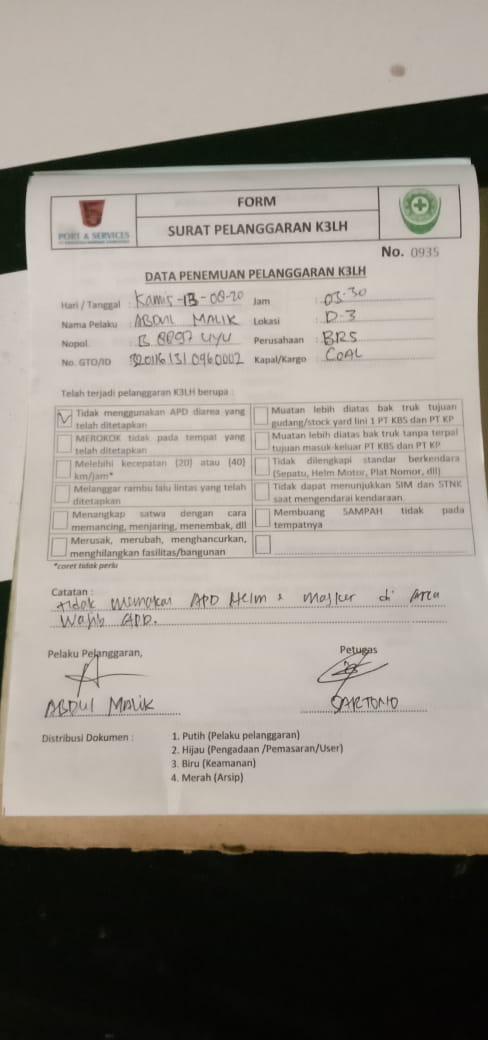 FORM
PORT & SERVICES
SURAT PELANGGARAN K3LH
No. 0935
DATA PENEMUAN PELANGGARAN K3LH
Hari / Tanggal : Kamis -13-08-20 Jam : 03.30
Nama Pelaku : ABDUL MALIK Lokasi : D-3
Nopol : B 9897 UYU Perusahaan : BRS
No. GTO/ID : Kapal/Kargo : COAL
Telah terjadi pelanggaran K3LH berupa :
Tidak menggunakan APD diarea yang telah ditetapkan
Muatan lebih diatas bak truk tujuan gudang/stock yard lini 1 PT KBS dan PT KP
MEROKOK tidak pada tempat yang telah ditetapkan
Muatan lebih diatas bak truk tanpa terpal tujuan masuk-keluar PT KBS dan PT KP
Melebihi kecepatan (20) atau (40) km/jam*
Tidak dilengkapi standar berkendara (Sepatu, Helm Motor, Plat Nomor, dll)
Melanggar rambu lalu lintas yang telah ditetapkan
Tidak dapat menunjukkan SIM dan STNK saat mengendarai kendaraan
Menangkap satwa dengan cara memancing, menjaring, menembak, dll
Membuang SAMPAH tidak pada tempatnya
Merusak, merubah, menghancurkan, menghilangkan fasilitas/bangunan
*coret tidak perlu
Catatan :
tidak memakai APD Helm & masker di Area
Wajib APD.
Pelaku Pelanggaran, Petugas
ABDUL MALIK SARTONO
Distribusi Dokumen : 1. Putih (Pelaku pelanggaran)
2. Hijau (Pengadaan /Pemasaran/User)
3. Biru (Keamanan)
4. Merah (Arsip)